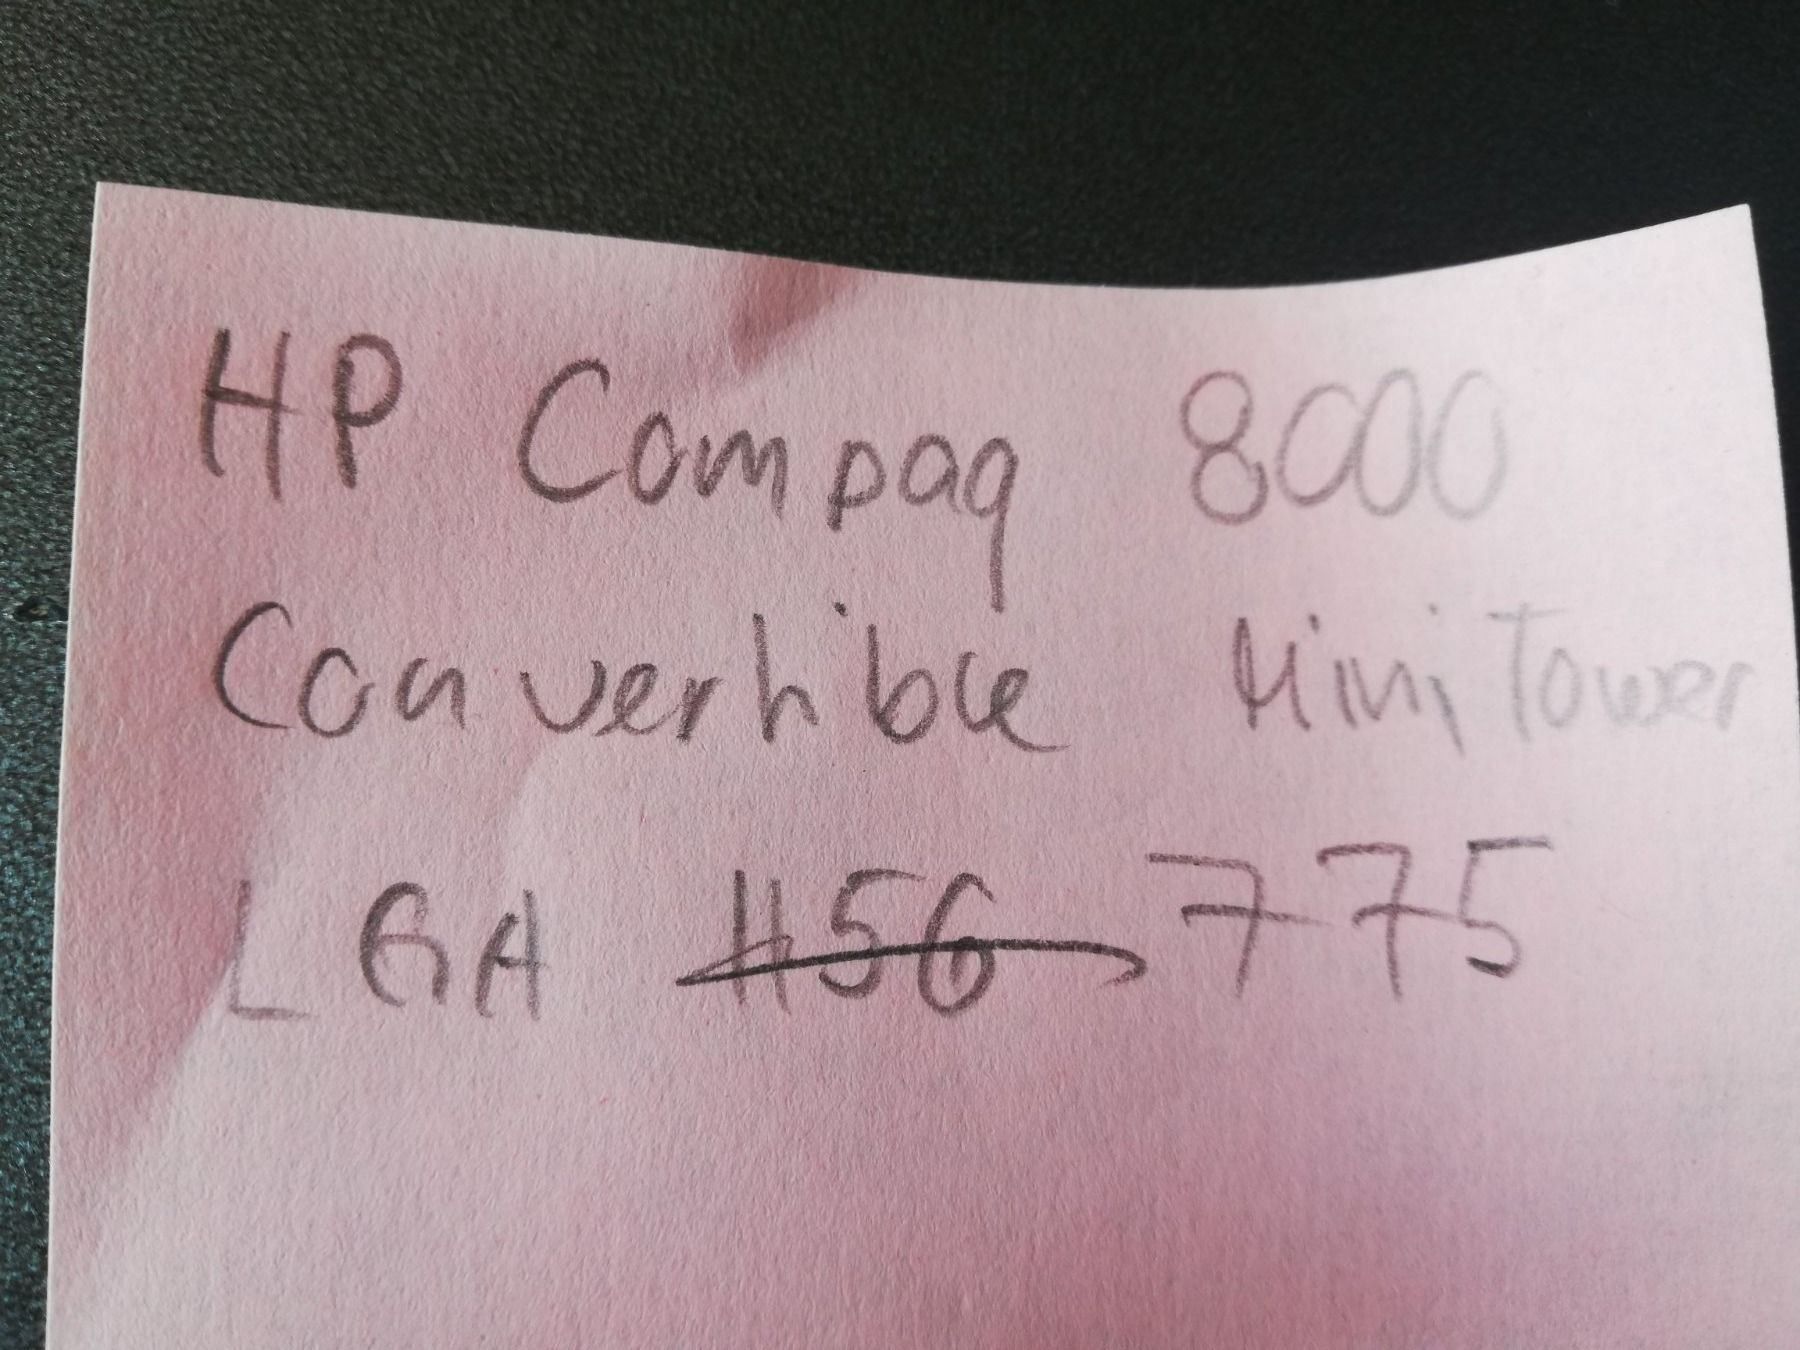 HP Compaq 8000
Convertible Mini Tower
LGA 1156 775